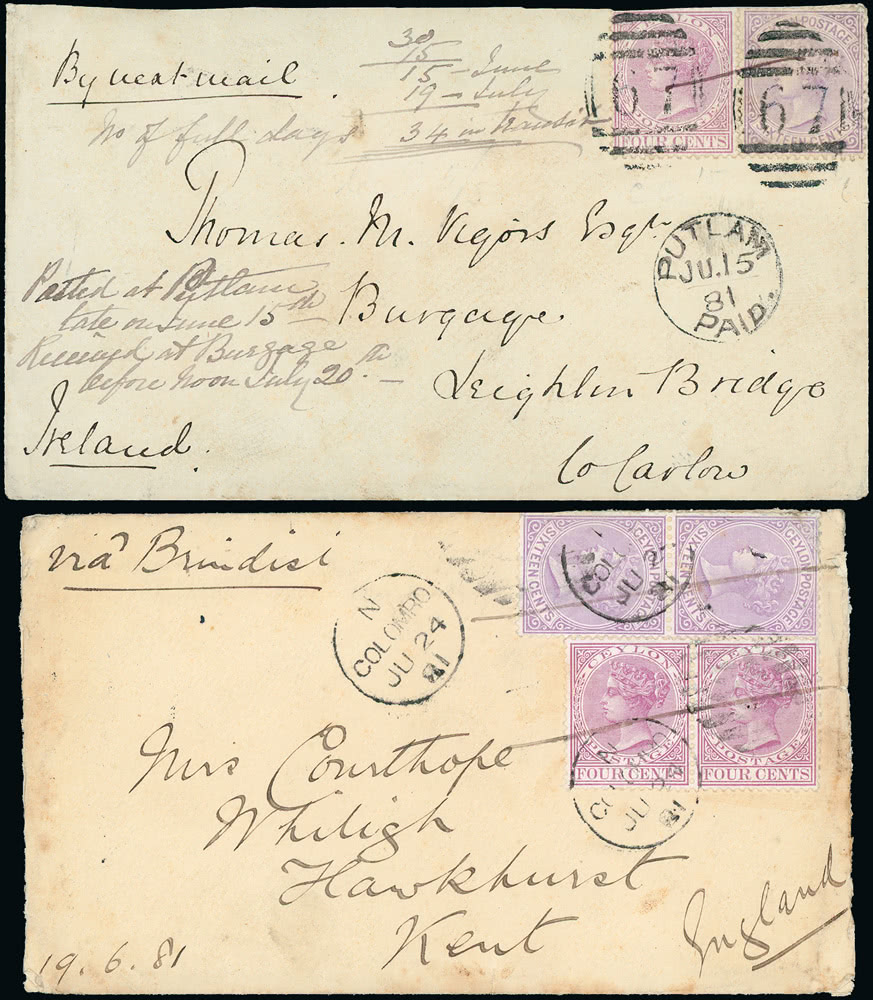 By next mail
30
15
15 - June
19 - July
No of full days 34 in transit
CEYLON
POSTAGE
FOUR CENTS
POSTAGE
67
67
Thomas. M. Vigors Esqre
PUTLAM
JU.15
81
PAID.
Posted at Putlam
late on June 15th
Burgage
Received at Burgage
before noon July 20th. -
Leighlin Bridge
Ireland.
Co Carlow
via Brindisi
CEYLON POSTAGE
SIXTEEN CENTS
CEYLON POSTAGE
SIXTEEN CENTS
COLO
JU
81
N
COLOMBO
JU 24
81
CEYLON
POSTAGE
FOUR CENTS
CEYLON
POSTAGE
FOUR CENTS
N
JU 24
81
Mrs Courthope
Whiligh
Hawkhurst
Kent
England
19.6.81